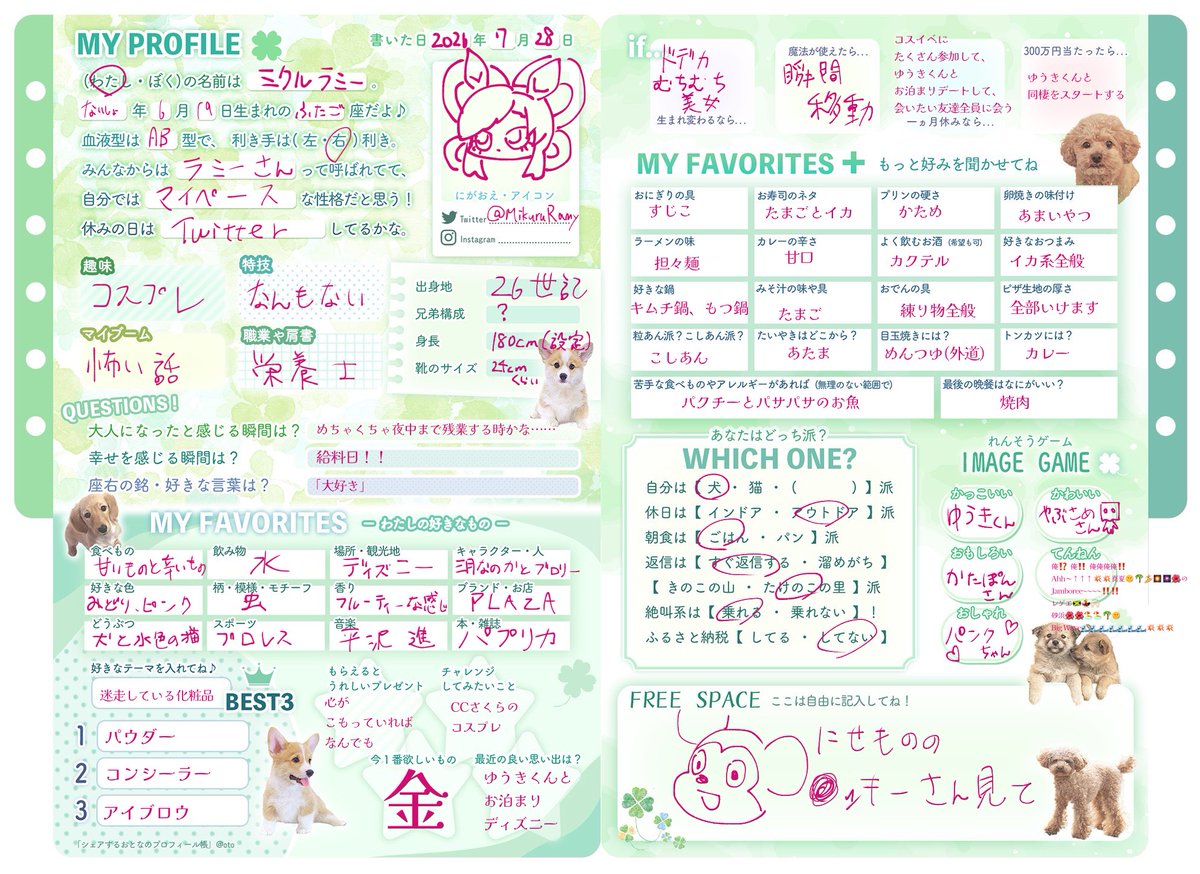 MY PROFILE
書いた日 2021 年 7 月 28 日
(わたし・ぼく)の名前は ミクルラミー 。
ないしょ 年 6 月 19 日生まれの ふたご 座だよ♪
血液型は AB 型で、 利き手は(左・右)利き。
みんなからは ラミーさん って呼ばれてて、
自分では マイペース な性格だと思う!
休みの日は Twitter してるかな。
にがおえ・アイコン
Twitter @MikuruRamy
Instagram
趣味
コスプレ
特技
なんもない
マイブーム
怖い話
職業や肩書
栄養士
出身地 26世記
兄弟構成 ?
身長 180cm(設定)
靴のサイズ 24cmくらい
QUESTIONS!
大人になったと感じる瞬間は? めちゃくちゃ夜中まで残業する時かな……
幸せを感じる瞬間は? 給料日!!
座右の銘・好きな言葉は? 「大好き」
MY FAVORITES ーわたしの好きなものー
食べもの 甘いものと辛いもの
飲み物 水
場所・観光地 ディズニー
キャラクター・人 洞なのかとブロリー
好きな色 みどり、ピンク
柄・模様・モチーフ 虫
香り フルーティーな感じ
ブランド・お店 PLAZA
どうぶつ 犬と水色の猫
スポーツ プロレス
音楽 平沢進
本・雑誌 パプリカ
好きなテーマを入れてね♪
迷走している化粧品 BEST3
1 パウダー
2 コンシーラー
3 アイブロウ
もらえると
うれしいプレゼント
心が
こもっていれば
なんでも
チャレンジ
してみたいこと
CCさくらの
コスプレ
今1番欲しいもの
金
最近の良い思い出は?
ゆうきくんと
お泊まり
ディズニー
「シェアするおとなのプロフィール帳」@oto
if...
ドデカ
むちむち
美女
生まれ変わるなら...
魔法が使えたら...
瞬間
移動
コスイベに
たくさん参加して、
ゆうきくんと
お泊まりデートして、
会いたい友達全員に会う
一ヵ月休みなら...
300万円当たったら...
ゆうきくんと
同棲をスタートする
MY FAVORITES + もっと好みを聞かせてね
おにぎりの具 すじこ
お寿司のネタ たまごとイカ
プリンの硬さ かため
卵焼きの味付け あまいやつ
ラーメンの味 担々麺
カレーの辛さ 甘口
よく飲むお酒(希望も可) カクテル
好きなおつまみ イカ系全般
好きな鍋 キムチ鍋、もつ鍋
みそ汁の味や具 たまご
おでんの具 練り物全般
ピザ生地の厚さ 全部いけます
粒あん派?こしあん派? こしあん
たいやきはどこから? あたま
目玉焼きには? めんつゆ(外道)
トンカツには? カレー
苦手な食べものやアレルギーがあれば(無理のない範囲で) パクチーとパサパサのお魚
最後の晩餐はなにがいい? 焼肉
あなたはどっち派?
WHICH ONE?
自分は【 犬 ・ 猫 ・ ( ) 】派
休日は【 インドア ・ アウトドア 】派
朝食は【 ごはん ・ パン 】派
返信は【 すぐ返信する ・ 溜めがち 】
【 きのこの山 ・ たけのこの里 】派
絶叫系は【 乗れる ・ 乗れない 】!
ふるさと納税【 してる ・ してない 】
れんそうゲーム
IMAGE GAME
かっこいい
ゆうきくん
かわいい
やぶさめさん
おもしろい
かたぽんさん
てんねん
俺⁉ 俺‼ 俺俺俺俺‼
Jamboree~~~~‼‼
おしゃれ
パンクちゃん
FREE SPACE ここは自由に記入してね!
にせものの
ッキーさん見て